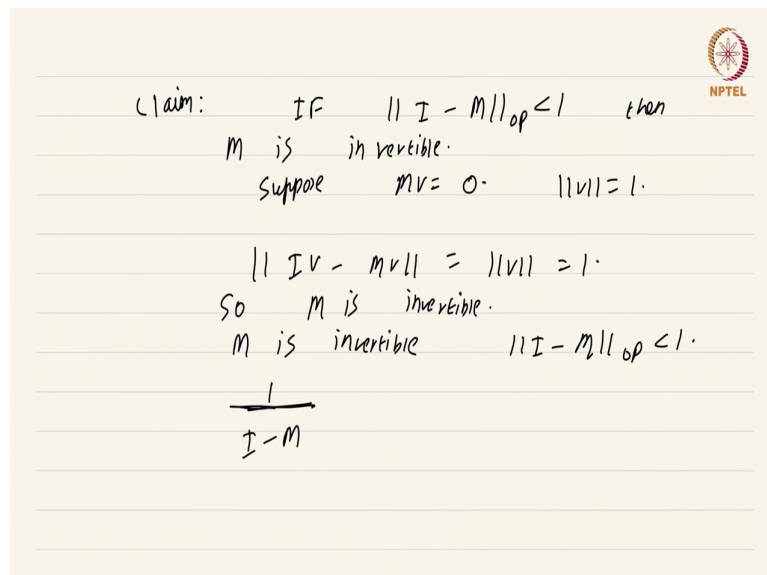 NPTEL
Claim: IF || I - M||op < 1 then
M is invertible.
Suppose MV = 0. ||V|| = 1.
|| IV - MV|| = ||V|| = 1.
So M is invertible.
M is invertible ||I - M||op < 1.
1
I - M